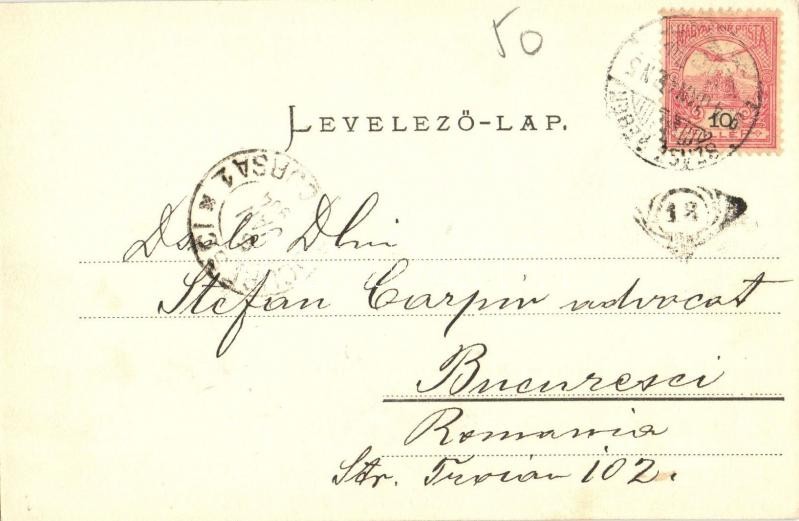 50
MAGYAR KIR. POSTA
10
LEVELEZŐ-LAP.
18
CURSA 1
Dsale Dlui
Stefan Carpiv advocat
Bucuresci
Romania
Str. Troian 102.